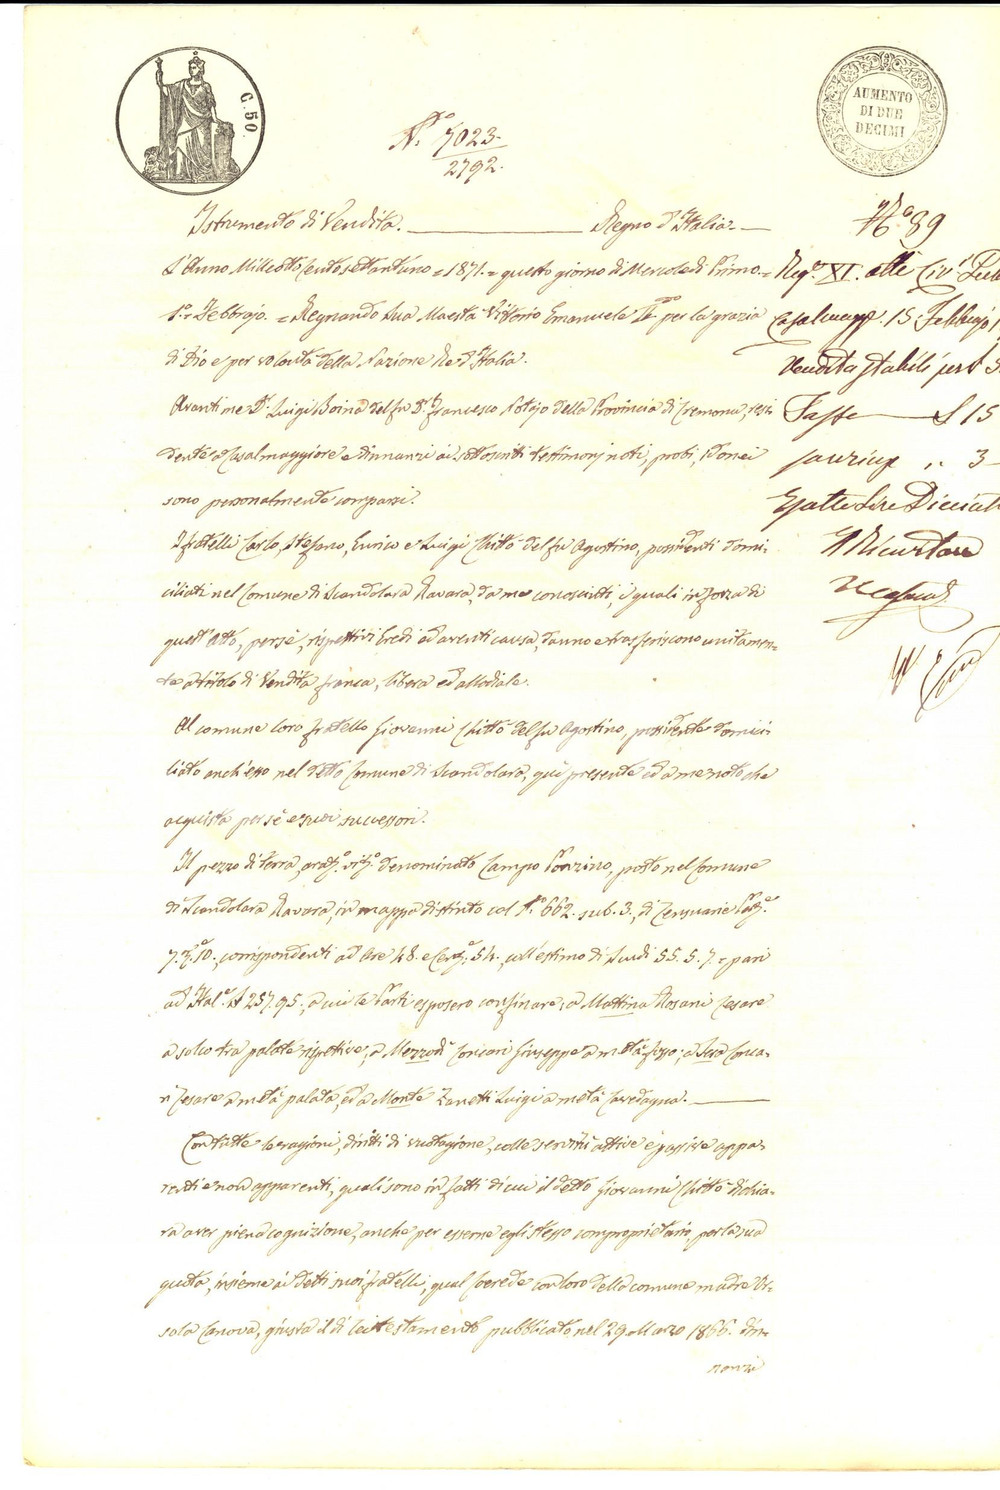 C. 50.
AUMENTO
DI DUE
DECIMI
N.º 5023
2792.
Istrumento di Vendita. Regno d'Italia.
L'Anno Milleottocentosettantuno = 1871. = questo giorno di Mercoledì Primo =
1º = Febbrajo. = Regnando Sua Maestà Vittorio Emanuele IIº per la grazia
di Dio e per volontà della Nazione Re d'Italia.
Avanti me Dr. Luigi Boina del fu Dr. Francesco Notajo della Provincia di Cremona, resi-
dente a Casalmaggiore e dinnanzi ai sottoscritti testimonj noti, probi, idonei
sono personalmente comparsi.
I fratelli Carlo, Stefano, Enrico e Luigi Chittò del fu Agostino, possidenti domi-
ciliati nel Comune di Scandolara Ravara, da me conosciuti, i quali in forza di
quest'atto, per sè, rispettivi Eredi ed aventi causa, danno e trasferiscono unitamen-
te a titolo di Vendita franca, libera ed allodiale.
Al comune loro fratello Giovanni Chittò del fu Agostino, possidente domici-
liato anch'esso nel detto Comune di Scandolara, quì presente ed a me noto che
acquista per sè e suoi successori.
Il pezzo di terra, arat.º vit.º denominato Campo Ponzino, posto nel Comune
di Scandolara Ravara, in mappa distinto col N.º 662. sub. 3., di Censuarie Pert.e
7. 10., corrispondenti ad Are 48. e Cent.e 54., coll'estimo di Scudi 55. 5. 7 = pari
ad Ital.e £ 257.95., a cui le Parti esposero confinare, a Mattina Rosani Cesare
a solco tra palate rispettive; a Mezzodì Concari Giuseppe a metà fosso; a Sera Conca-
ri Cesare a metà palata, ed a Monte Zanetti Luigi a metà Cavedagna.
Con tutte le ragioni, diritti di vuotagione, colle servitù attive e passive appa-
renti e non apparenti, quali sono in fatti di cui il detto Giovanni Chittò dichia-
ra aver piena cognizione, anche per esserne egli stesso comproprietario, per la sua
quota, insieme ai detti suoi fratelli, qual coerede con loro della comune madre Or-
sola Canova, giusta il di lei testamento pubblicato nel 29. Marzo 1866. din-
nanzi
N.º 89
Reg.º XI. atti Civ.
Casalmagg.e 15. Febbrajo
Vendita stabili per £
Tassa £ 15
3
Esatte Lire Diciott
Il Ricevitore